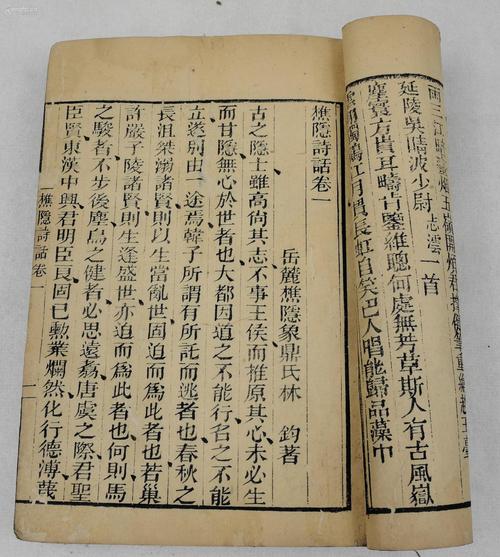 延陵吳疇波少尉志澐一首
塵寰方貴耳疇占鑒維聰何處無芳草斯人有古風嶽
雲江月貫長虹自笑巴人唱能歸品藻中
樵隱詩話卷一
岳麓樵隱象鼎氏林 鈞著
古之隱士雖高尚其志不事王侯而推原其心未必生
而甘隱無心於世者也大都因道之不能行名之不能
立遂別由一途焉韓子所謂有所託而逃者也春秋之
長沮桀溺諸賢則以生當亂世固迫而爲此者也若巢
許嚴子陵諸賢則以生逢盛世亦迫而爲此者也何則馬
之駿者不步後塵鳥之健者必思遠翥唐虞之際君聖
臣賢東漢中興君明臣良固已勲業爛然化行德溥蔑
樵隱詩話卷一 一